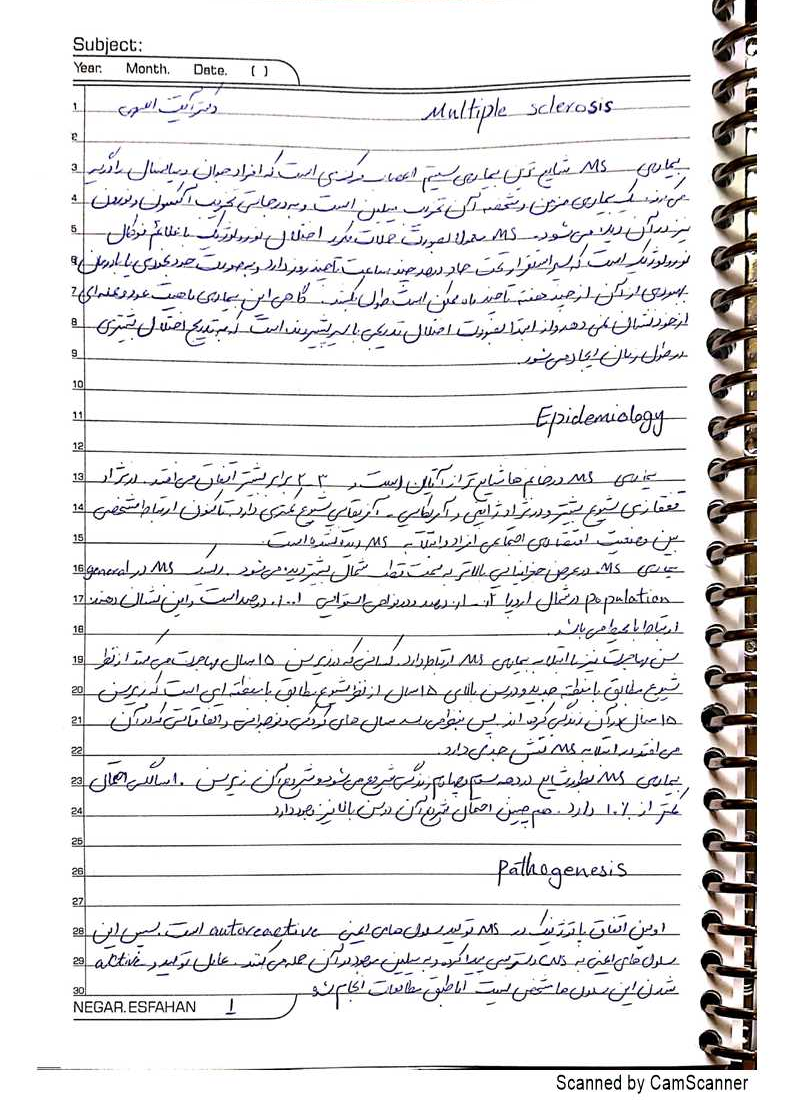 Subject:
Year. Month. Date. ( )
Multiple sclerosis دکتر آیت اللهی
بیماری MS شایع ترین بیماری سیستم اعصاب مرکزی است که افراد جوان و میانسال را درگیر
می کند. یک بیماری مزمن و مشخصه آن تخریب میلین است و به درجاتی تخریب آکسون و نورون
نیز در آن دیده می شود. MS معمولا بصورت حملات مکرر اختلال نورولوژیک با علائم فوکال
نورولوژیک است که سیر استقرار تحت حاد در حد چند ساعت تا چند روز دارد و به صورت خودبخودی یا با درمان
بهبودی از آن از چند هفته تا چند ماه ممکن است طول بکشد. گاهی این بیماری ماهیت عود و حمله ای
از خود نشان نمی دهد و از ابتدا بصورت اختلال تدریجی با سیر پیشرونده است که به تدریج اختلال بیشتری
در طول زمان ایجاد می شود.
Epidemiology
بیماری MS در خانم ها شایع تر از آقایان است و ۳-۲ برابر بیشتر اتفاق می افتد. در نژاد
قفقازی شیوع بیشتر و در نژاد ژاپنی و آمریکایی - آفریقایی شیوع کمتری دارد. تاکنون ارتباط مشخصی
بین وضعیت اقتصادی اجتماعی افراد و ابتلا به MS دیده نشده است.
بیماری MS در عرض جغرافیایی بالاتر به سمت قطب شمال بیشتر دیده می شود. ریسک MS در general
population در شمال اروپا ۰.۲ درصد و در نواحی استوایی ۰.۰۱ درصد است و این نشان دهنده
ارتباط با محیط می باشد.
سن مهاجرت نیز با ابتلا به بیماری MS ارتباط دارد. کسانی که در زیر سن ۱۵ سال مهاجرت می کنند از نظر
شیوع مطابق با منطقه جدید و در سن بالای ۱۵ سال از نظر شیوع مطابق با منطقه ای است که زیر سن
۱۵ سال در آن زندگی کرده اند. پس بنظر می رسد سال های کودکی و نوجوانی و اتفاقاتی که در آن
می افتد در ابتلا به MS نقش جدی دارد.
بیماری MS بطور شایع در دهه سوم و چهارم زندگی شروع می شود و شروع آن زیر سن ۱۰ سالگی احتمال
کمتر از ۱۰٪ دارد. همچنین احتمال شروع آن در سن بالا نیز وجود دارد
Pathogenesis
اولین اتفاق پاتوژنیک در MS تولید سلول های ایمنی autoreactive است. سپس این
سلول های ایمنی به CNS دسترسی پیدا کرده و به میلین موجود در آن حمله می کنند. عامل تولید و active
شدن این سلول ها مشخص نیست اما طبق مطالعات انجام شده
NEGAR.ESFAHAN 1
Scanned by CamScanner